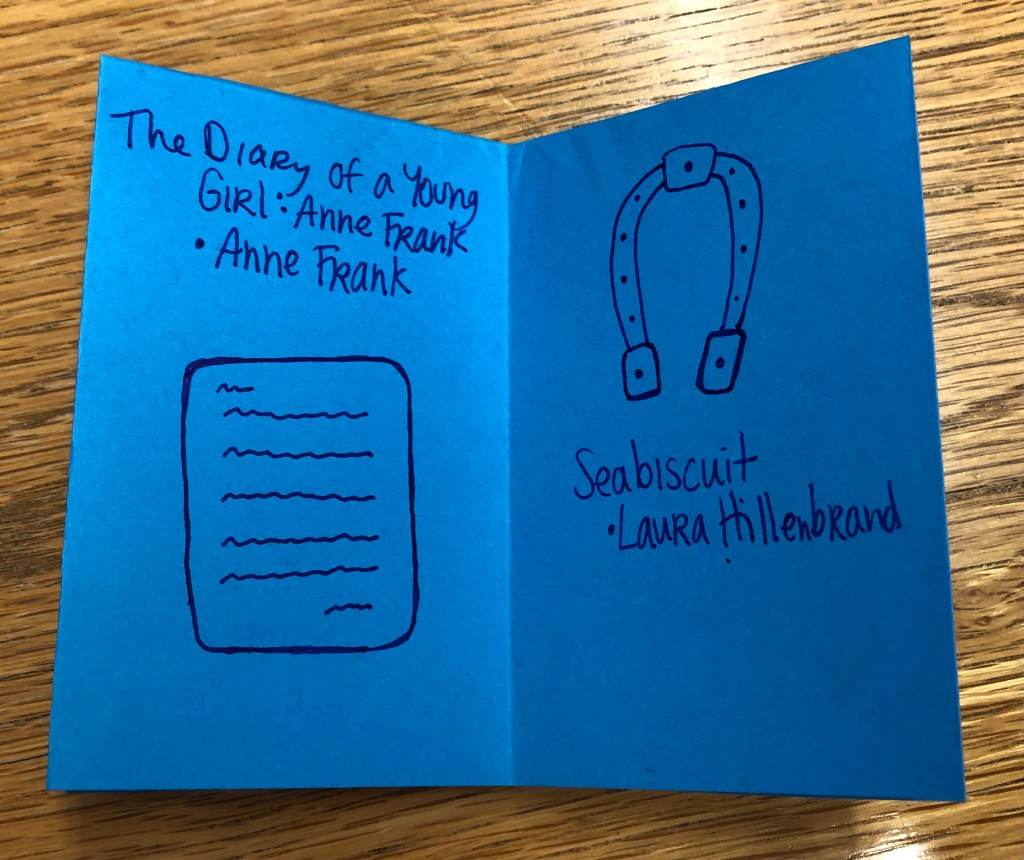 The Diary of a Young
Girl: Anne Frank
• Anne Frank
Seabiscuit
• Laura Hillenbrand